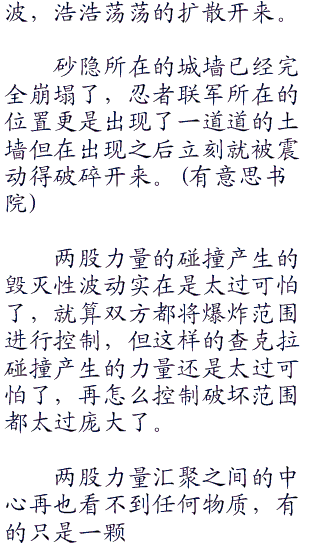 波，浩浩荡荡的扩散开来。
砂隐所在的城墙已经完
全崩塌了，忍者联军所在的
位置更是出现了一道道的土
墙但在出现之后立刻就被震
动得破碎开来。（有意思书
院）
两股力量的碰撞产生的
毁灭性波动实在是太过可怕
了，就算双方都将爆炸范围
进行控制，但这样的查克拉
碰撞产生的力量还是太过可
怕了，再怎么控制破坏范围
都太过庞大了。
两股力量汇聚之间的中
心再也看不到任何物质，有
的只是一颗